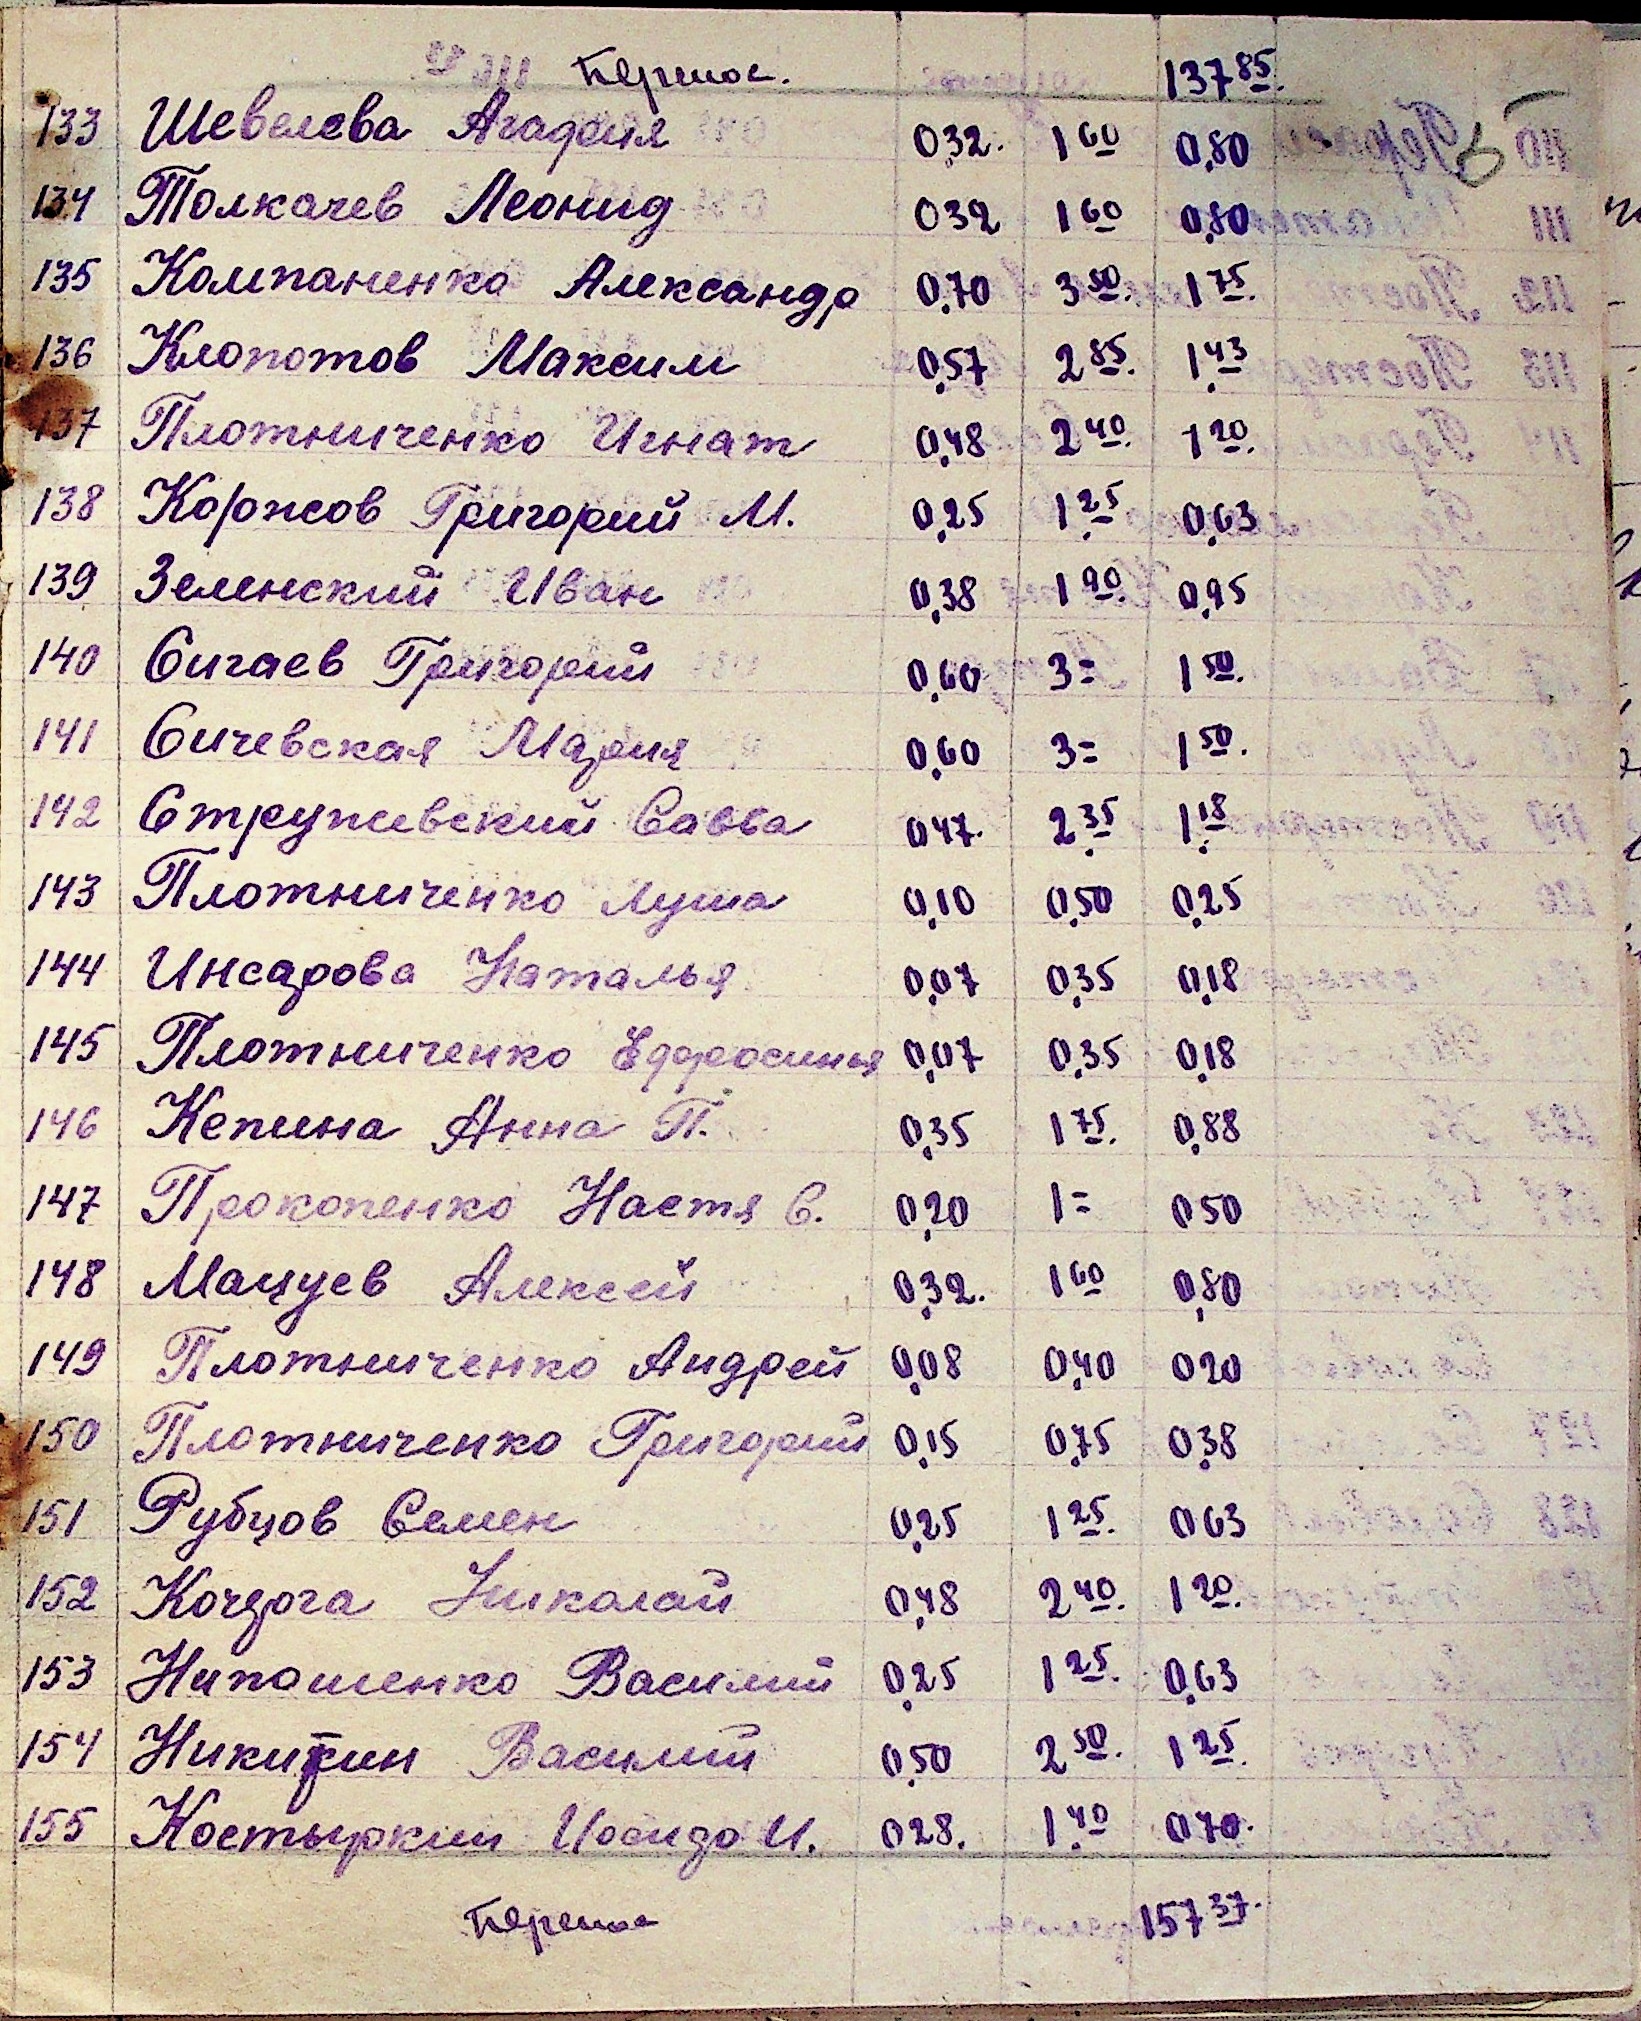 Перенос. 137 85.
133 Шевелева Агафия 0,32. 1 60 0,80
134 Толкачев Леонид 0 32 1 60 0,80
135 Компаненко Александр 0,70 3 50. 1 75.
136 Клопотов Максим 0,57 2 85. 1,43
137 Плотниченко Игнат 0,48 2 40. 1 20.
138 Коржов Григорий М. 0,25 1,25 0,63
139 Зеленский Иван 0,38 1 90. 0,95
140 Сигаев Григорий 0,60 3= 1 50.
141 Сичевская Мария 0,60 3= 1 50.
142 Стружевский Савва 0 47. 2,35 1,18
143 Плотниченко Луша 0,10 0,50 0,25
144 Инсарова Наталья 0,07 0,35 0,18
145 Плотниченко Ефросинья 0,07 0,35 0,18
146 Кепина Анна П. 0,35 1 75. 0,88
147 Прокопенко Настя С. 0,20 1= 0 50
148 Мацуев Алексей 0,32. 1 60 0,80
149 Плотниченко Андрей 0,08 0,40 0 20
150 Плотниченко Григорий 0,15 0,75 0,38
151 Рубцов Семен 0,25 1 25. 0 63
152 Кочерга Николай 0,48 2 40. 1 20.
153 Нипошенко Василий 0,25 1 25. 0,63
154 Никитин Василий 0,50 2 50. 1 25.
155 Костыркин И. 0 28. 1,40 0 70.
Перенос 157 37.